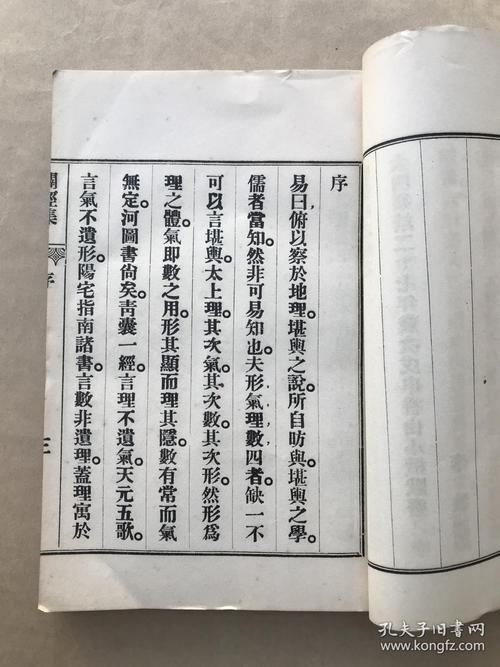 序
易曰俯以察於地理。堪輿之說。所自昉與。堪輿之學。
儒者當知。然非可易知也。夫形氣理數四者。缺一不
可以言堪輿。太上理。其次氣。其次數。其次形。然形爲
理之體。氣卽數之用。形其顯而理其隱。數有常而氣
無定。河圖書尙矣。靑囊一經。言理不遺氣。天元五歌。
言氣不遺形。陽宅指南諸書。言數非遺理。蓋理寓於
闢徑集
序
孔夫子旧书网
www.kongfz.com